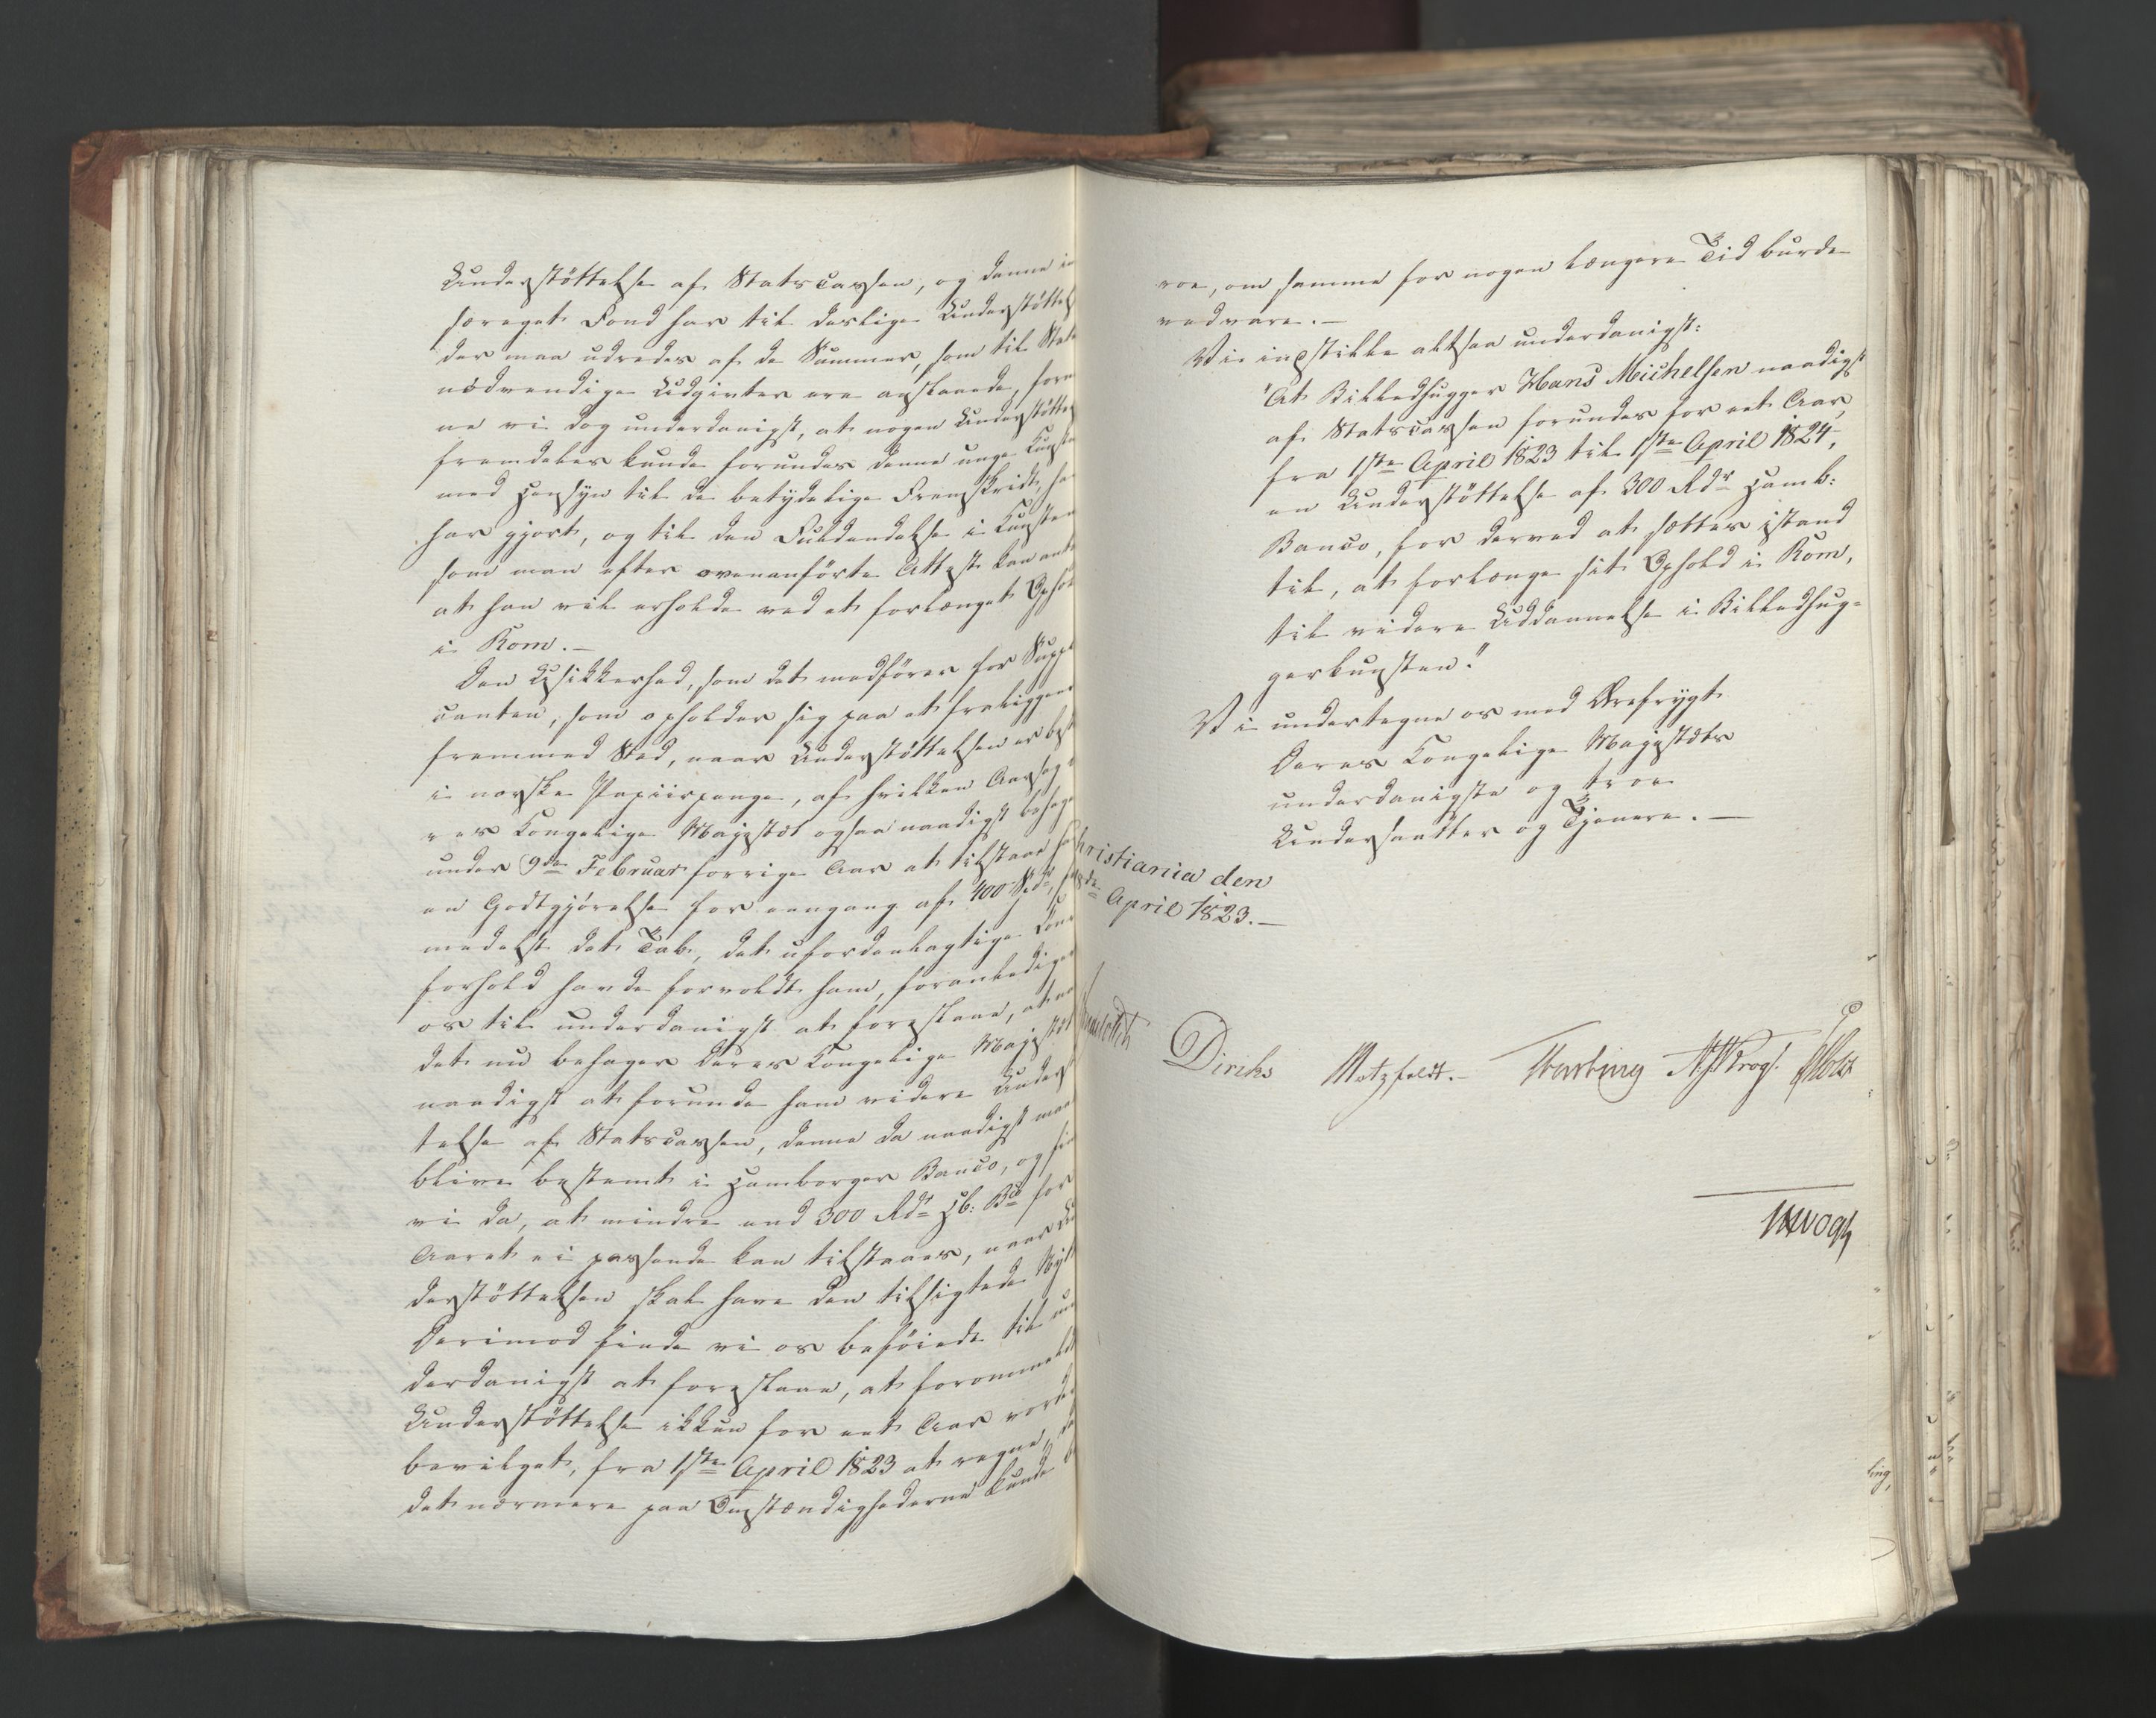 Understöttelse af Statscassen, og denne
særeget Fond har til deslige Understöttel
der maa udredes af de Summer, som til Stat
nödvendige Udgivter ere anslaaede, form
ne vi dog underdanigst, at nogen Understötte
fremdeles kunde forundes denne unge Kunst
med Hensyn til de betydelige Fremskridt, ha
har gjort, og til den Fuldendelse i Kunsten
som man efter ovenanförte Attest kan ant
at han vil erholde ved et forlænget Ophol
i Rom.—
Den Usikkerhed, som det medförer for Suppl
canten, som opholder sig paa et fraliggen
fremmed Sted, naar Understöttelsen er best
i norske Papiirpenge, af hvilken Aarsag
res Kongelige Majestæt ogsaa naadigst behage
under 9de Februar forrige Aar at tilstaae ha
en Godtgjörelse for eengang af 400 Spdr,
medelst det Tab, det ufordeelagtige Cour
forhold havde forvoldt ham, foranlediger
os til underdanigst at foreslaae, at naar
det nu behager Deres Kongelige Majestæt
naadigst at forunde ham videre Underst
telse af Statscassen, denne da naadigst maa
blive bestemt i Hamborger Banco, og fin
vi da, at mindre end 300 Rdr Hb: Bco for
Aaret ei passende kan tilstaaes, naar Un
derstöttelsen skal have den tilsigtede Nyt
Derimod finde vi os beföiede til un
derdanigst at foreslaae, at forommeldt
Understöttelse ikkun for eet Aar vorder
bevilget, fra 1ste April 1823 at regne, da
det nærmere paa Omstændighederne kunde
roe, om samme for nogen længere Tid burde
vedvare.—
Vi indstille altsaa underdanigst:
"At Billedhugger Hans Michelsen naadigst
af Statscassen forundes for eet Aar,
fra 1ste April 1823 til 1ste April 1824,
en Understöttelse af 300 Rdr Hamb:
Banco, for derved at sættes istand
til, at forlænge sit Ophold i Rom,
til videre Uddannelse i Billedhug-
gerkunsten."
Vi undertegne os med Ærefrygt
Deres Kongelige Majestæts
underdanigste og troe
Undersaatter og Tjenere.—
hristiania den
8de April 1823.—
Diriks Motzfeldt.- Krogh Holst